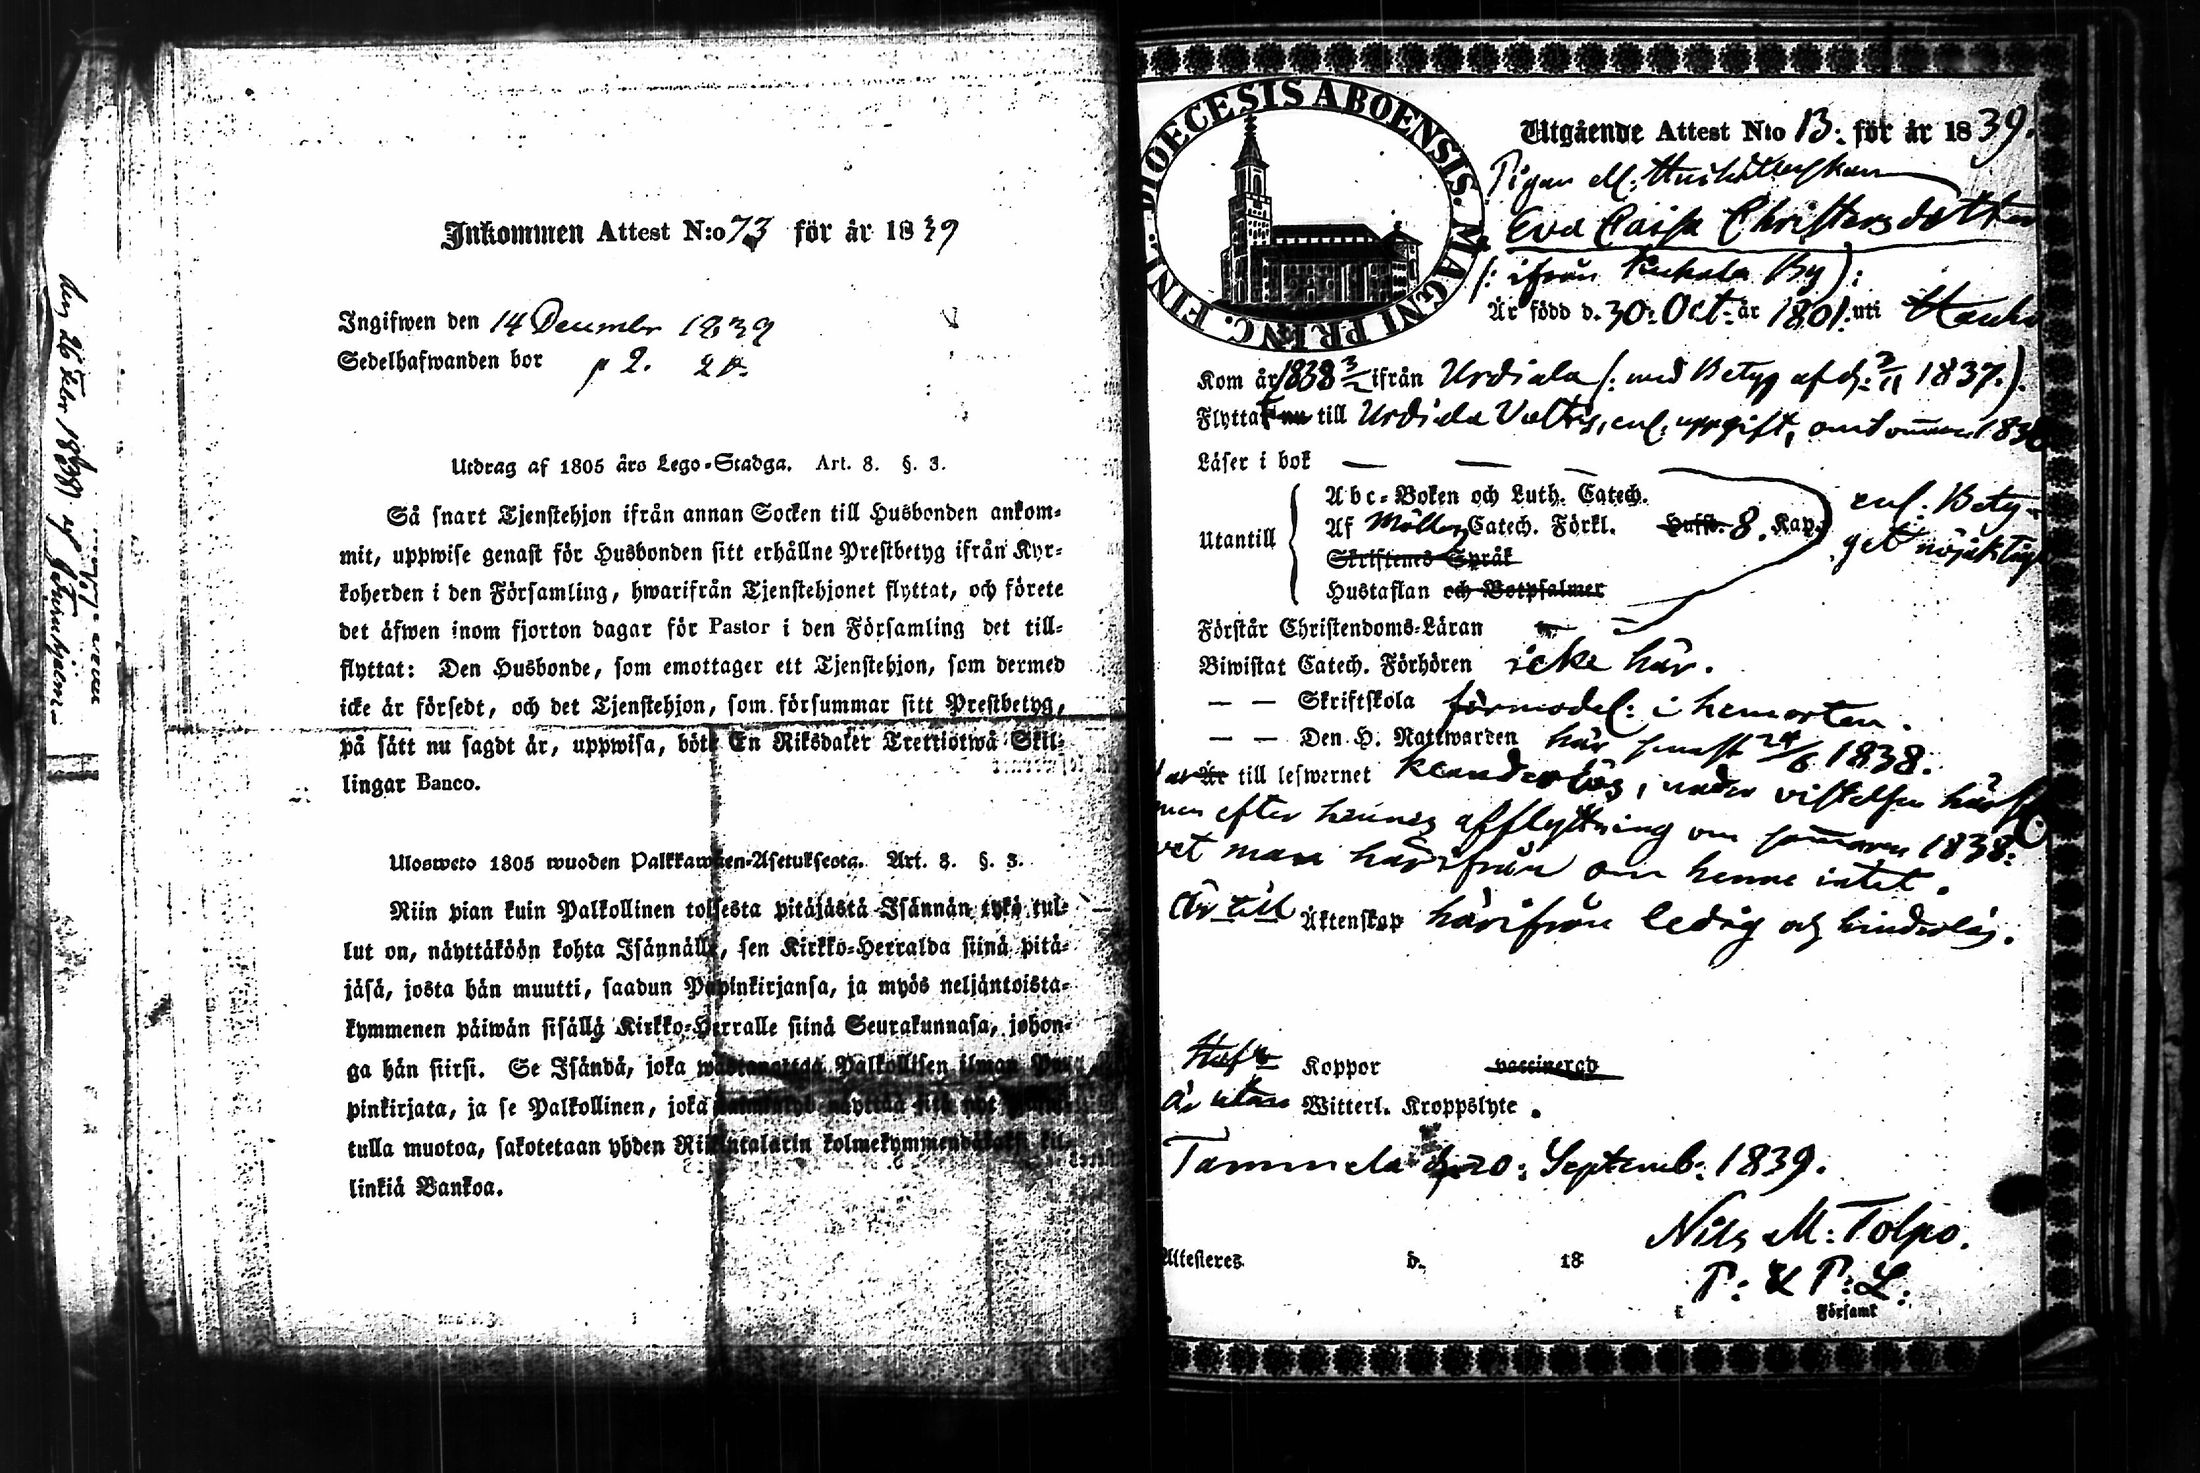 Inkommen Attest N:o 73 för år 1839
Ingifwen den 14 Decembr 1839
Sedelhafwanden bor p 2.
Utdrag af 1805 års Lego-Stadga. Art. 8. §. 3.
Så snart Tjenstehjon ifrån annan Socken till Husbonden ankom-
mit, uppwise genast för Husbonden sitt erhållne Prestbetyg ifrån Kyr-
koherden i den Församling, hwarifrån Tjenstehjonet flyttat, och förete
det äfwen inom fjorton dagar för Pastor i den Församling det till-
flyttat: Den Husbonde, som emottager ett Tjenstehjon, som dermed
icke är försedt, och det Tjenstehjon, som försummar sitt Prestbetyg,
på sätt nu sagdt är, uppwisa, böte En Riksdaler Trettiotwå Skil-
lingar Banco.
Ulosweto 1805 wuoden Palkkawäen-Asetuksesta. Art. 8. §. 3.
Niin pian kuin Palkollinen toisesta pitäjästä Isännän tykö tul-
lut on, näyttäköön kohta Isännälle, sen Kirkko-Herralda siinä pitä-
jäsä, josta hän muutti, saadun Papinkirjansa, ja myös neljäntoista-
kymmenen päiwän sisällä Kirkko-Herralle siinä Seurakunnasa, johon-
ga hän siirsi. Se Isändä, joka wastanottaa Palkollisen ilman Pa-
pinkirjata, ja se Palkollinen, joka
tulla muotoa, sakotetaan yhden Riikintalarin kolmekymmendäkaksi kil-
linkiä Bankoa.
den 26 Febr 1839 af
DIOECESIS ABOENSIS. MAGNI PRINC. FINL.
Utgående Attest N:o 13: för år 1839.
Pigan
Eva Caisa Christersdotter
(: ifrån By):
Är född d. 30: Oct: år 1801. uti
Kom år 1838 3/2 ifrån Urdiala (: med Betyg af d: 2/11 1837.).
Flyttat nu till Urdiala enl. uppgift, 1838
Läser i bok — — —
Utantill
Abc-Boken och Luth. Catech.
Af Möllers Catech. Förkl. Hufst. 8. Kap.
Skriftenes Språk
Hustaflan och Botpsalmer
enl: Bety-
get nöjaktigt
Förstår Christendoms-Läran
Biwistat Catech. Förhören icke här.
— — Skriftskola förmodel: i hemorten.
— — Den H. Nattwarden här senast 24/6 1838.
Är till lefwernet klanderlös, under vistelsen här
men efter hennes afflyttning om sommaren 1838:
vet man härifrån om henne intet.
Är till Äktenskap härifrån ledig och hinderlös.
Haft Koppor vaccinerad
Är utan Witterl. Kroppslyte.
Tammela d. 20: Septemb: 1839.
Nils M: Tolpo.
P: & P: L:
Attesteres d. 18
i Församl